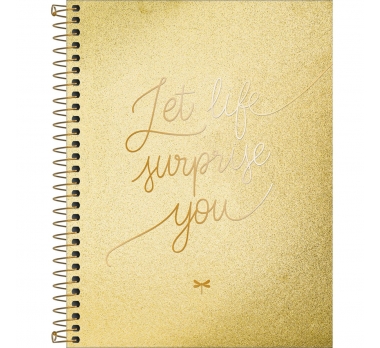 Let life
surprise
you